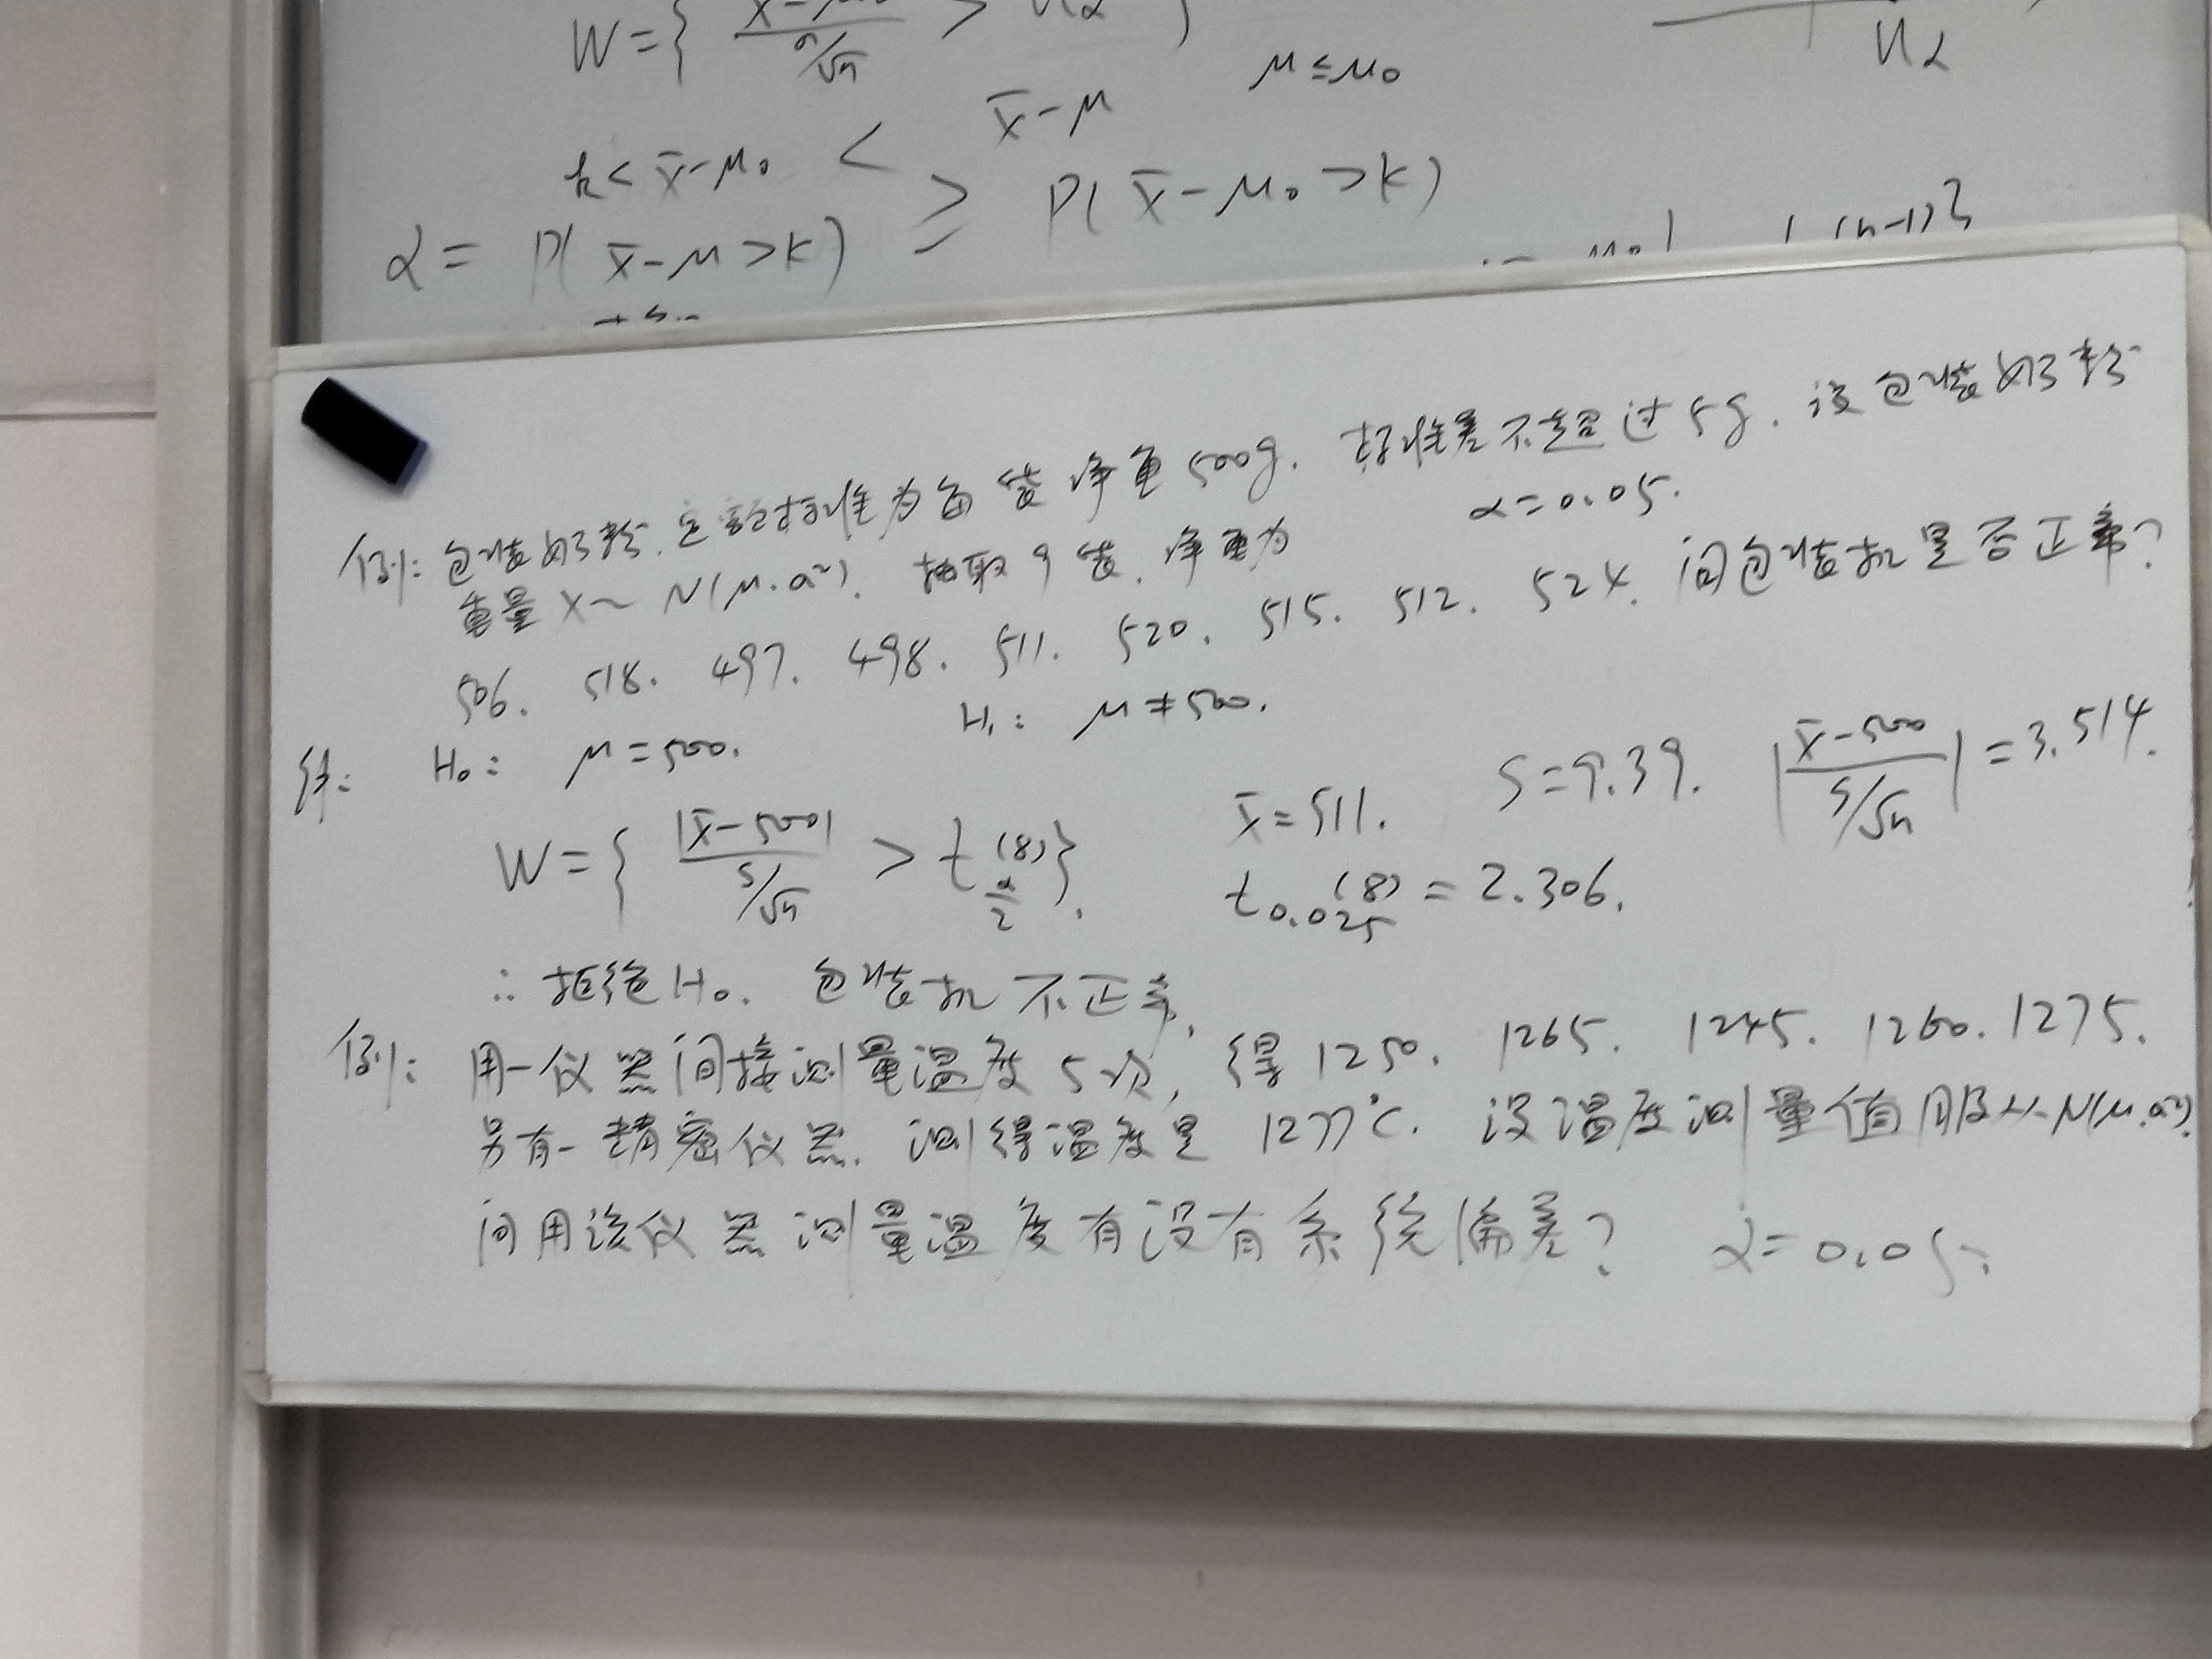 W={ (x̄-μ₀)/(σ/√n) > u_α }
u_α
μ≤μ₀
k< x̄-μ₀ < x̄-μ
α= P( x̄-μ>k) ≥ P( x̄-μ₀ >k)
(n-1)}
例: 包装奶粉. 包装标准为每袋净重500g. 标准差不超过5g. 设包装奶粉
重量X~N(μ.σ²). 抽取9袋. 净重为 α=0.05.
506. 518. 497. 498. 511. 520. 515. 512. 524. 问包装机是否正常?
解: H₀: μ=500. H₁: μ≠500.
W={ |x̄-500|/(S/√n) > t_{α/2}(8)}. x̄=511. S=9.39. |(x̄-500)/(S/√n)|=3.514.
t_{0.025}(8)=2.306.
∴拒绝H₀. 包装机不正常.
例: 用一仪器间接测量温度5次, 得1250. 1265. 1245. 1260. 1275.
另有一精密仪器. 测得温度是1277°C. 设温度测量值服从N(μ.σ²).
问用该仪器测量温度有没有系统偏差? α=0.05.